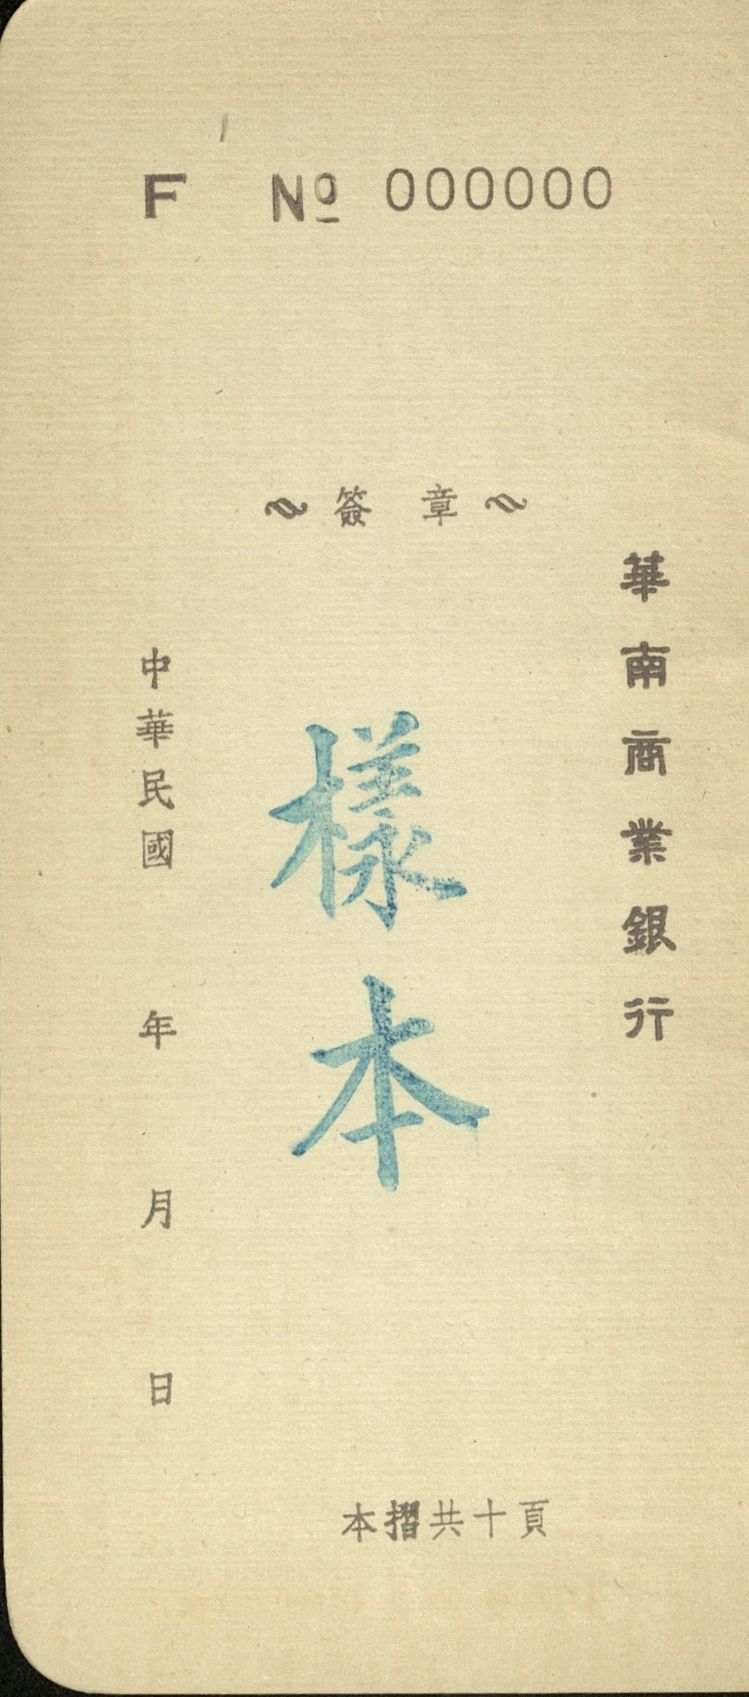 F № 000000
簽章
華南商業銀行
樣本
中華民國 年 月 日
本摺共十頁